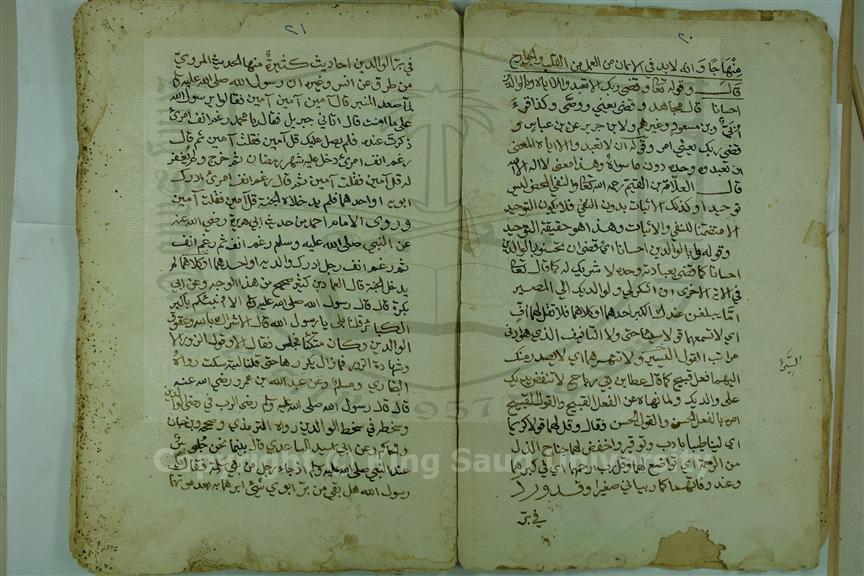 ٢٠
منهاجا وانه لا بد في الايمان من العمل من القلب والجوارح
قال وقوله تعالى وقضى ربك الا تعبدوا الا اياه وبالوالدين
احسانا قال مجاهد وقضى يعني ووصى وكذا قرء
ابي وبن مسعود وغيرهم ولابن جرير عن بن عباس و
قضى ربك يعني امر وقوله ان لا تعبدوا الا اياه المعنى
ان تعبدوه وحده دون ما سواه وهذا معنى لا اله الا الله
قال العلامة بن القيم رحمه الله تعالى والنفي المحض ليس
توحيدا وكذلك الاثبات بدون النفي فلا يكون التوحيد
الا متضمنا للنفي والاثبات وهذا هو حقيقة التوحيد
وقوله وبالوالدين احسانا اي قضى ان تحسنوا بالوالدين
احسانا كما قضى بعبادته وحده لا شريك له كما قال تعالى
في الاية الاخرى ان اشكر لي ولوالديك الي المصير
اما يبلغن عندك الكبر احدهما او كلاهما فلا تقل لهما اف
اي لا تسمعهما قولا سيئا حتى ولا التافيف الذي هو ادنى
مراتب القول السيئ ولا تنهرهما اي لا يصدر منك
السيئ
اليهما فعل قبيح كما قال عطا بن ابي رباح لا تنفض يديك
على والديك ولما نهاه عن الفعل القبيح والقول القبيح
امره بالفعل الحسن والقول الحسن فقال وقل لهما قولا كريما
اي لينا طيبا بادب وتوقير واخفض لهما جناح الذل
من الرحمة اي تواضع لهما وقل رب ارحمهما اي في كبرهما
وعند وفاتهما كما ربياني صغيرا وقد ورد
في بر
٢١
في بر الوالدين احاديث كثيرة منها الحديث المروي
من طرق عن انس وغيره ان رسول الله صلى الله عليه وسلم
لما صعد المنبر قال آمين آمين آمين فقالوا يا رسول الله
على ما امنت قال اتاني جبريل فقال يا محمد رغم انف امرئ
ذكرت عنده فلم يصل عليك قل آمين فقلت آمين ثم قال
رغم انف امرئ دخل عليه شهر رمضان ثم خرج ولم يغفر
له قل آمين فقلت آمين ثم قال رغم انف امرئ ادرك
ابويه او احدهما فلم يدخلاه الجنة قل آمين فقلت آمين
وروى الامام احمد من حديث ابي هريرة رضي الله عنه
عن النبي صلى الله عليه وسلم رغم انف ثم رغم انف
ثم رغم انف رجل ادرك والديه او احدهما او كلاهما لم
يدخل الجنة قال العماد بن كثير صحيح من هذا الوجه وعن ابي
بكرة قال قال رسول الله صلى الله عليه وسلم الا انبئكم باكبر
الكبائر قلنا بلى يا رسول الله قال الاشراك بالله وعقوق
الوالدين وكان متكئا فجلس فقال الا وقول الزور الا
وشهادة الزور فما زال يكررها حتى قلنا ليته سكت رواه
البخاري ومسلم وعن عبد الله بن عمرو رضي الله عنه
قال قال رسول الله صلى الله عليه وسلم رضى الرب في رضى الوالدين
وسخطه في سخط الوالدين رواه الترمذي وصححه بن حبان
والحاكم وعن ابي اسيد الساعدي قال بينا نحن جلوس
عند النبي صلى الله عليه وسلم اذ جاءه رجل من بني سلمة فقال يا
رسول الله هل بقي من بر ابوي شيئ ابرهما به بعد موتهما
Copyright © King Saud University
1957